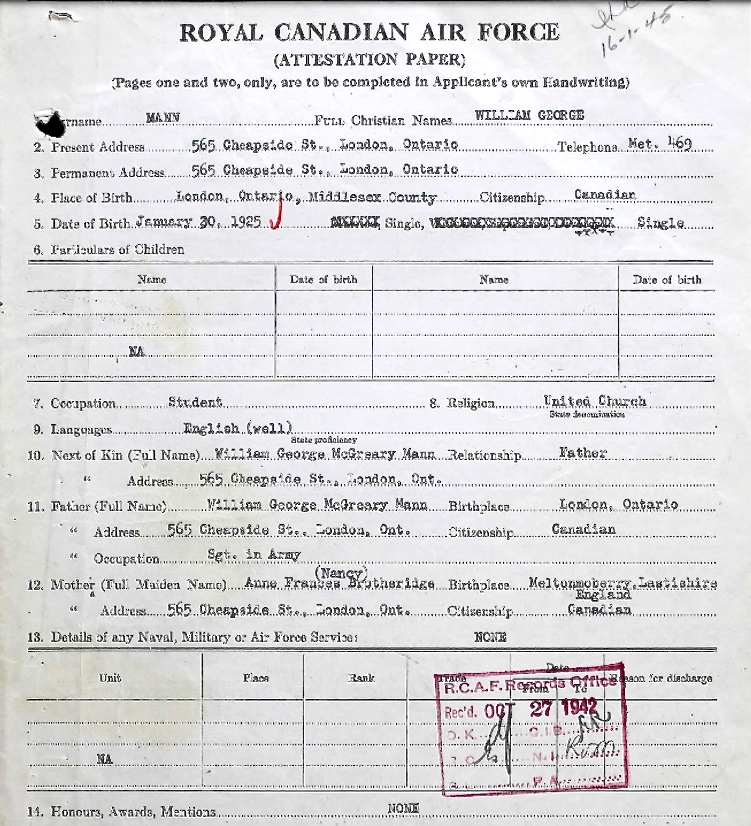 16-1-45
ROYAL CANADIAN AIR FORCE
(ATTESTATION PAPER)
(Pages one and two, only, are to be completed in Applicant's own Handwriting)
rname MANN Full Christian Names WILLIAM GEORGE
2. Present Address 565 Cheapside St., London, Ontario Telephone Met. 469
3. Permanent Address 565 Cheapside St., London, Ontario
4. Place of Birth London, Ontario, Middlesex County Citizenship Canadian
5. Date of Birth January 30, 1925 Single, Single
6. Particulars of Children
Name Date of birth Name Date of birth
NA
7. Occupation Student 8. Religion United Church
State denomination
9. Languages English (well)
State proficiency
10. Next of Kin (Full Name) William George McGreary Mann Relationship Father
" Address 565 Cheapside St., London, Ont.
11. Father (Full Name) William George McGreary Mann Birthplace London, Ontario
" Address 565 Cheapside St., London, Ont. Citizenship Canadian
" Occupation Sgt. in Army
(Nancy)
12. Mother (Full Maiden Name) Anne Frances Brotheridge Birthplace Meltonmoberry, Lastishire
England
" Address 565 Cheapside St., London, Ont. Citizenship Canadian
13. Details of any Naval, Military or Air Force Service: NONE
Unit Place Rank Trade Date From To Reason for discharge
R.C.A.F. Records Office
Rec'd. OCT 27 1942
NA
14. Honours, Awards, Mentions NONE